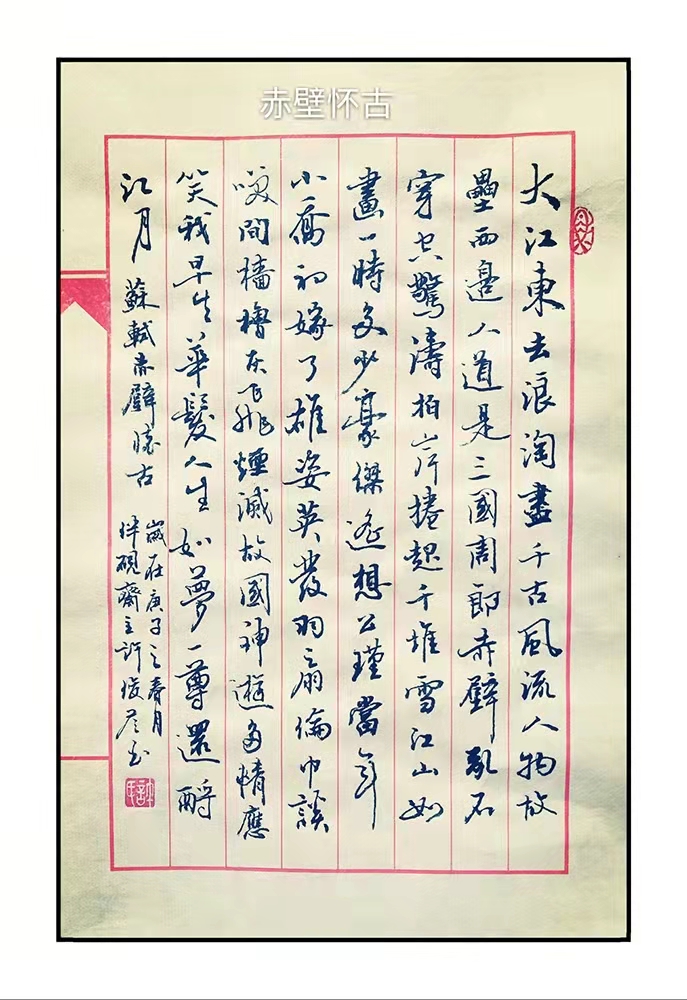 赤壁怀古
大江東去浪淘盡千古風流人物故
壘西邊人道是三國周郎赤壁亂石
穿空驚濤拍岸捲起千堆雪江山如
畫一時多少豪傑遙想公瑾當年
小喬初嫁了雄姿英發羽扇綸巾談
咲間檣櫓灰飛煙滅故國神遊多情應
笑我早生華髮人生如夢一尊還酹
江月 蘇軾赤壁懷古
歲在庚子之春月
硯齋主許書